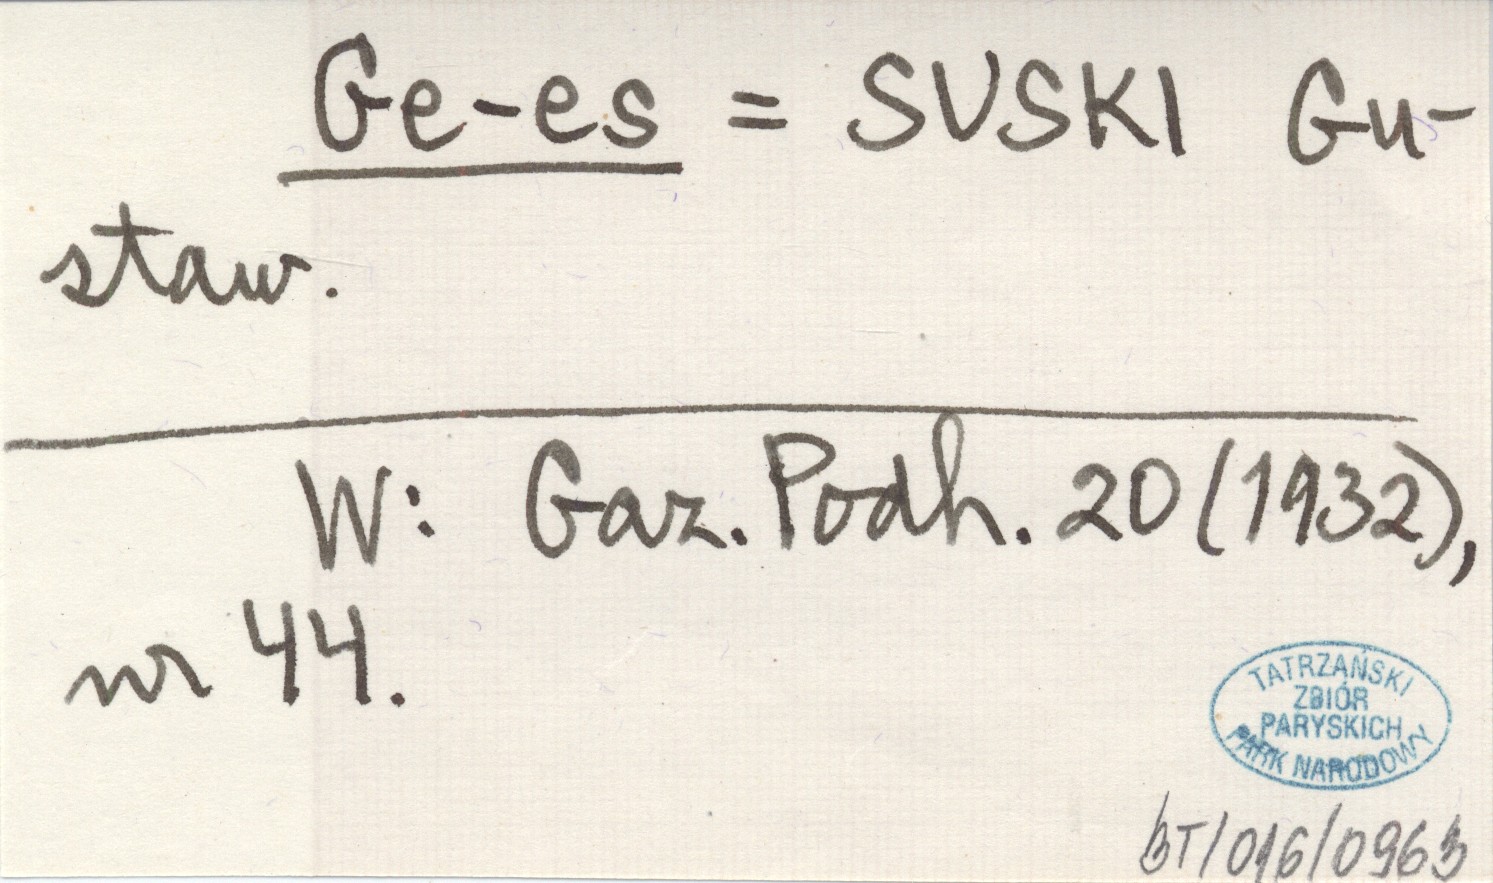 Ge-es = SUSKI Gu-
staw.
W: Gaz. Podh. 20 (1932),
nr 44.
TATRZAŃSKI
ZBIÓR
PARYSKICH
PARK NARODOWY
BT/016/0963